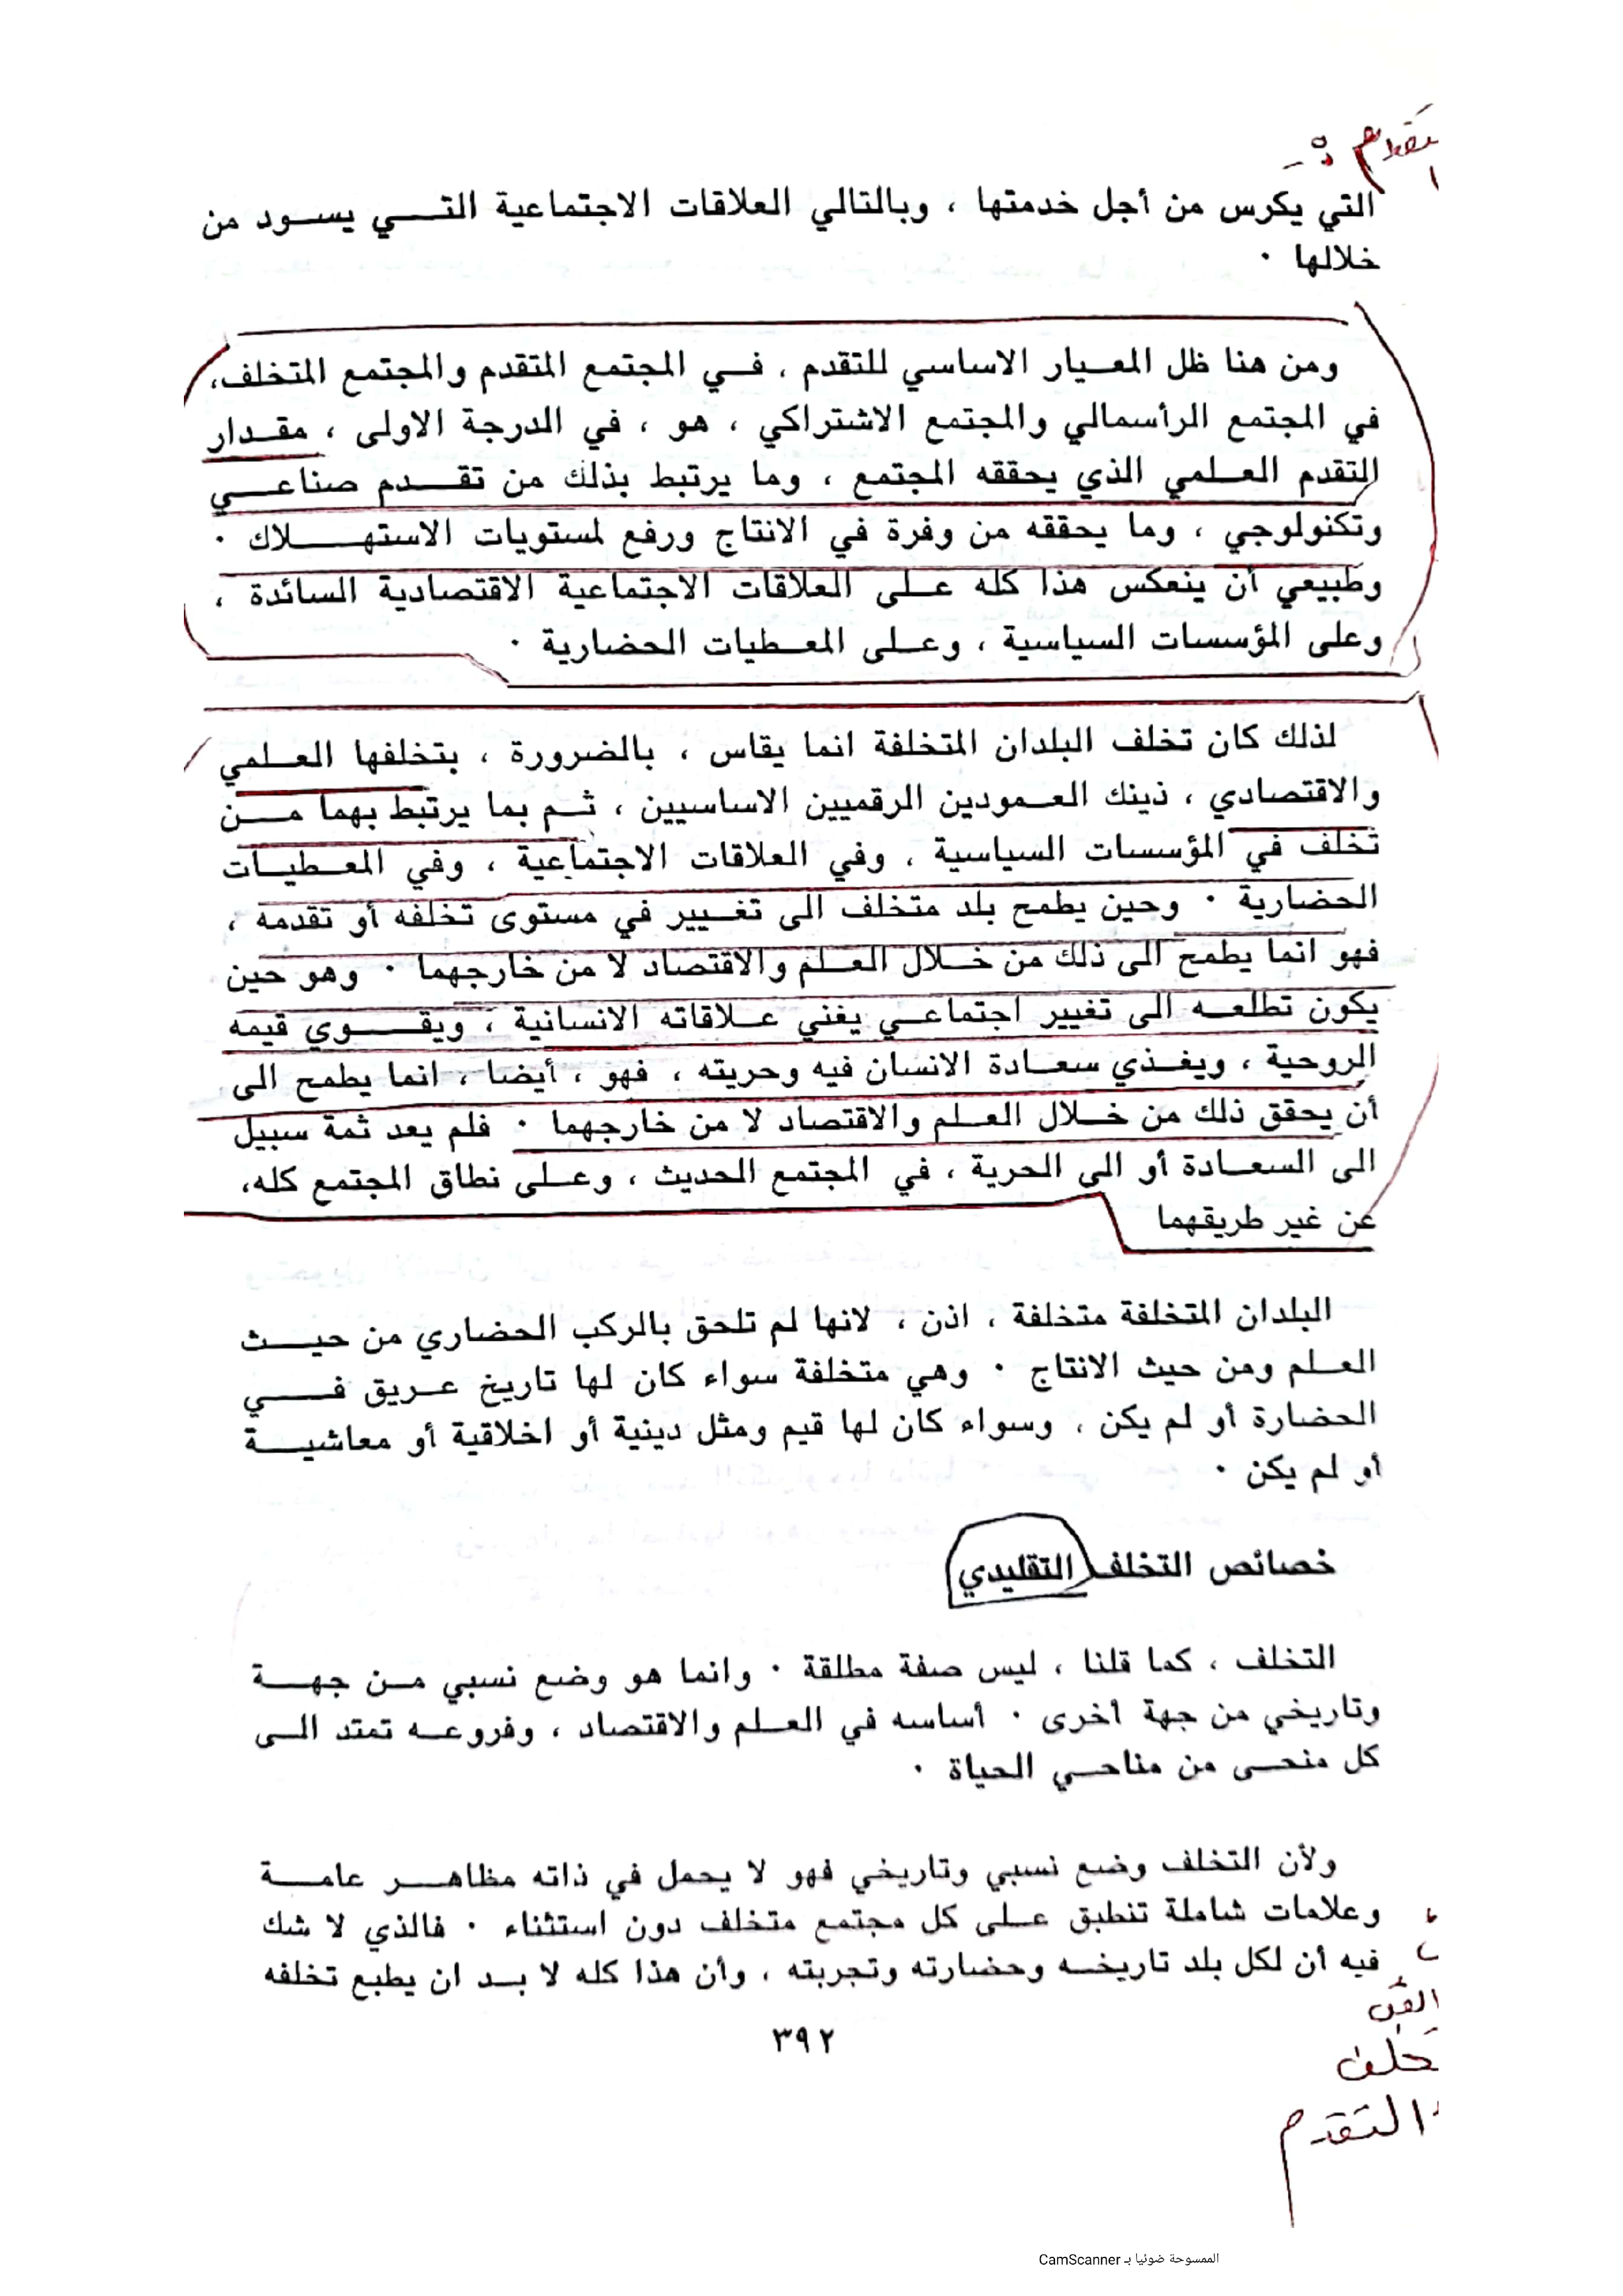 التقدم
التي يكرس من أجل خدمتها ، وبالتالي العلاقات الاجتماعية التي يسود من
خلالها .
ومن هنا ظل المعيار الاساسي للتقدم ، في المجتمع المتقدم والمجتمع المتخلف،
في المجتمع الرأسمالي والمجتمع الاشتراكي ، هو ، في الدرجة الاولى ، مقدار
التقدم العلمي الذي يحققه المجتمع ، وما يرتبط بذلك من تقدم صناعي
وتكنولوجي ، وما يحققه من وفرة في الانتاج ورفع لمستويات الاستهلاك .
وطبيعي أن ينعكس هذا كله على العلاقات الاجتماعية الاقتصادية السائدة ،
وعلى المؤسسات السياسية ، وعلى المعطيات الحضارية .
لذلك كان تخلف البلدان المتخلفة انما يقاس ، بالضرورة ، بتخلفها العلمي
والاقتصادي ، ذينك العمودين الرقميين الاساسيين ، ثم بما يرتبط بهما من
تخلف في المؤسسات السياسية ، وفي العلاقات الاجتماعية ، وفي المعطيات
الحضارية . وحين يطمح بلد متخلف الى تغيير في مستوى تخلفه أو تقدمه ،
فهو انما يطمح الى ذلك من خلال العلم والاقتصاد لا من خارجهما . وهو حين
يكون تطلعه الى تغيير اجتماعي يغني علاقاته الانسانية ، ويقوي قيمه
الروحية ، ويغذي سعادة الانسان فيه وحريته ، فهو ، أيضا ، انما يطمح الى
أن يحقق ذلك من خلال العلم والاقتصاد لا من خارجهما . فلم يعد ثمة سبيل
الى السعادة أو الى الحرية ، في المجتمع الحديث ، وعلى نطاق المجتمع كله،
عن غير طريقهما
البلدان المتخلفة متخلفة ، اذن ، لانها لم تلحق بالركب الحضاري من حيث
العلم ومن حيث الانتاج . وهي متخلفة سواء كان لها تاريخ عريق في
الحضارة أو لم يكن ، وسواء كان لها قيم ومثل دينية أو اخلاقية أو معاشية
أو لم يكن .
خصائص التخلف التقليدي
التخلف ، كما قلنا ، ليس صفة مطلقة . وانما هو وضع نسبي من جهة
وتاريخي من جهة أخرى . أساسه في العلم والاقتصاد ، وفروعه تمتد الى
كل منحى من مناحي الحياة .
ولأن التخلف وضع نسبي وتاريخي فهو لا يحمل في ذاته مظاهر عامة
وعلامات شاملة تنطبق على كل مجتمع متخلف دون استثناء . فالذي لا شك
فيه أن لكل بلد تاريخه وحضارته وتجربته ، وأن هذا كله لا بد ان يطبع تخلفه
٣٩٢
التقدم
الممسوحة ضوئيا بـ CamScanner